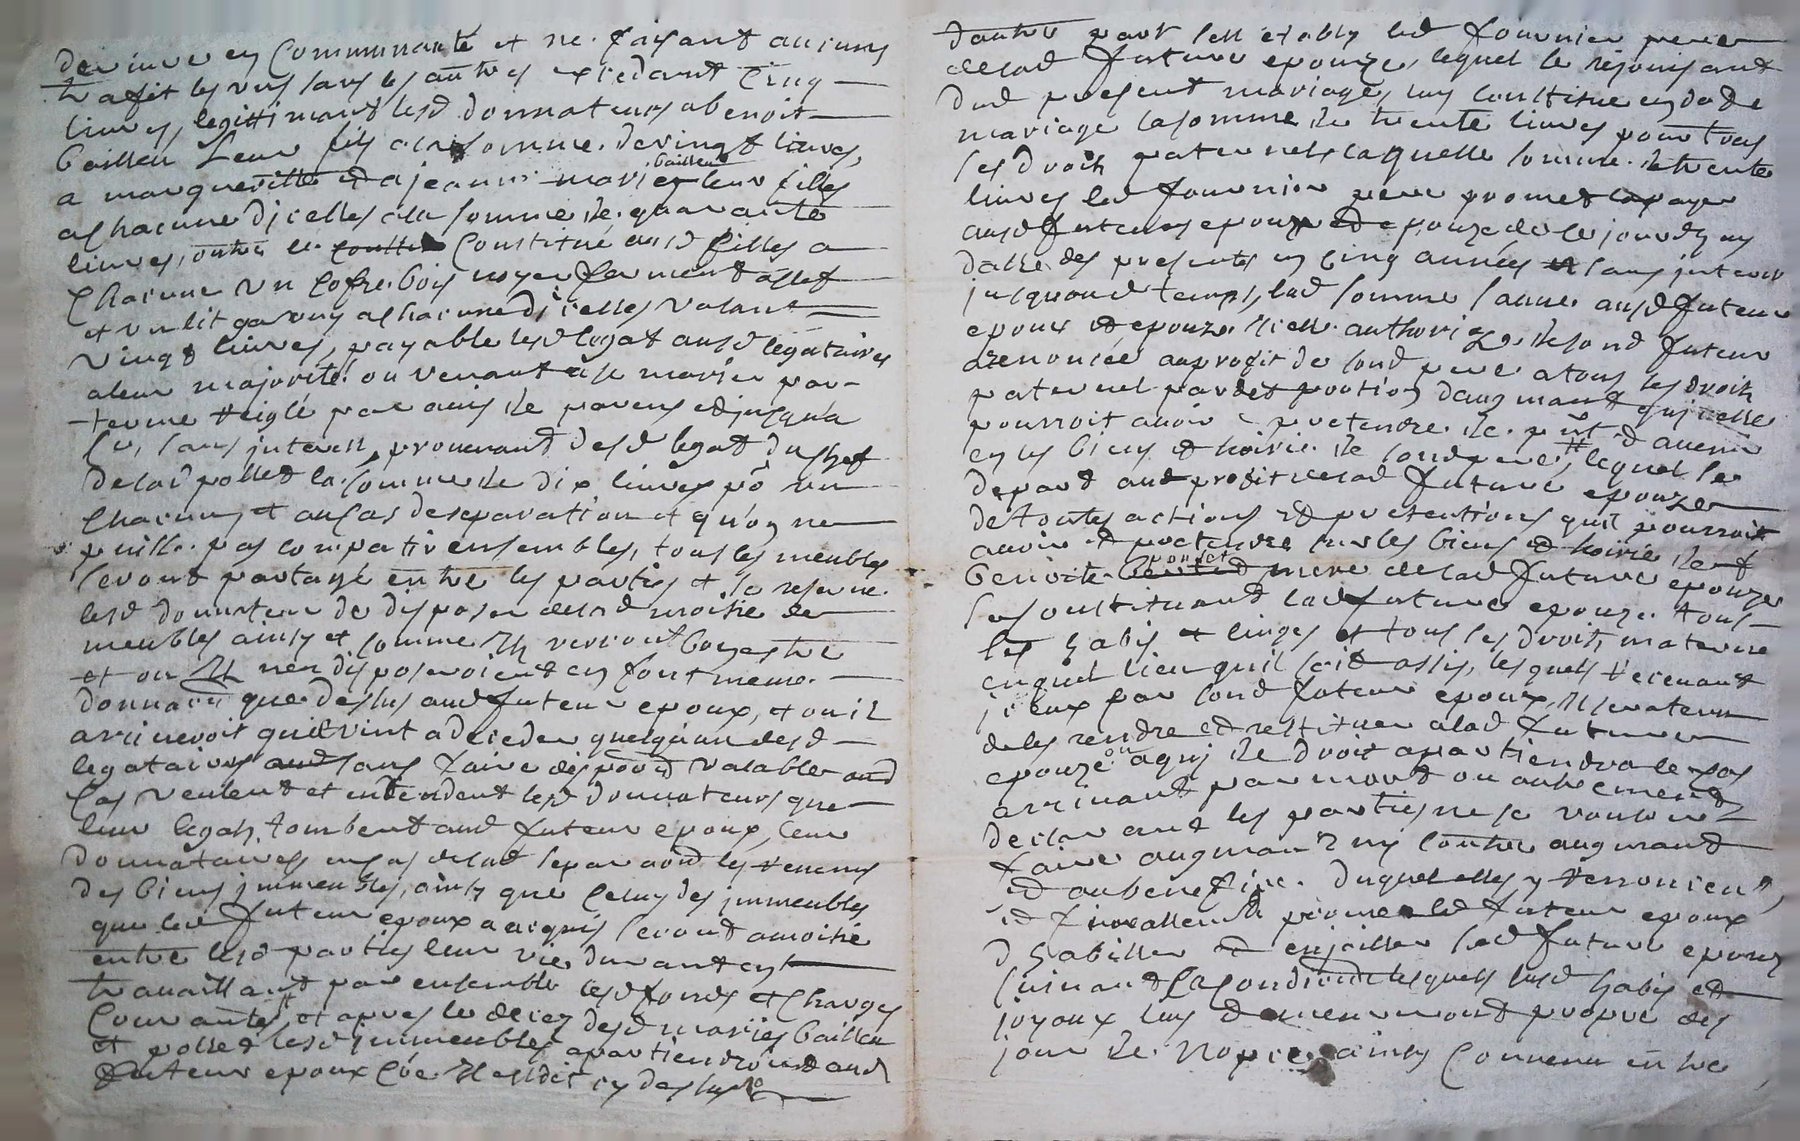 de vivre en Communauté et ne faisant aucuns
trafit les uns sans les autres excedant Cinq
livres, legittimant lesd donnateurs a benoit
baillou Leur fils a la somme de vingt livres,
a margueritte et a jeanne marie baillou leur filles
a chacune dicelles a la somme de quarante
livres, outre ce Constitué ausd filles a
Chacune un Cofre bois noyer fermant a clef
et un lit garny a chacune dicelles valant
vingt livres, payable lesd legat ausd legataires
a leur majorité ou venant a se marier par
terme reiglé par avis de parens et jusqu'a
ce, sans interest, provenant desd legat du chef
de lad pollet la somme de dix livres po un
Chacun, et au cas de separation et qu'on ne
puisse pas compatir ensembles, tous les meubles
seront partagé entre les parties et se reserve
lesd donnateur de disposer de lad moitié de
meubles ainsy et comme Ils verront bon estre
et ou Ils n'en disposeroient en font meme
donnation que dessus aud futeur epoux, et ou il
arriveroit qu'il vint a deceder quelqu'un desd
legataires sans faire dispoõn valable aud
Cas veulent et entendent lesd donnateurs que
leur legats tombent aud futeur epoux, leur
donnataires en cas de lad separaõn les revenus
des biens immeubles, ainsy que Celuy des immeubles
que led futeur epoux a acquis seront a moitié
entre lesd parties leur vie durant en
travaillant par ensemble lesd fonds et Charges
Courantes, et apres le deces desd mariés baillou
et pollet lesd immeubles apartiendront aud
futeur epoux Cõe Il est dit cy dessus
d'autre part s'est etably led fournier pere
de lad future epouze, lequel se rejouissant
dud present mariage, luy constitue en dode
mariage la somme de trente livres pour tous
ses droits paternels laquelle somme de trente
livres led fournier pere promet payer
ausd futeurs epoux et epouze de ce jourdhuy
datte des presentes en cinq années sans interest
jusquaud temps, lad somme sauve ausd futeur
epoux et epouze. Icelle authorizée de sond futeur
a renoncée au profit de sond pere a tous les droits
paternel part et portion d'augmant qu'icelle
pourroit avoir et pretendre de pñt et avenir
en les biens et hoirie de sond pere, lequel se
depart aud profit de lad future epouze
de toutes actions et pretentions qu'il pourroit
avoir et pretendre sur les biens et hoirie de
benoite poncet mere de lad future epouze
se constituant lad future epouze tous
ses habis et linges et tous ses droits maternel
en quel lieu quil soit assis, lesquels recevant
iceux par sond futeur epoux, Il sera tenu
de les rendre et restituer a lad future
epouze ou a qui de droit apartiendra le cas
arrivant par mort ou autrement
declarant les parties ne se vouloir
faire augmant ny Contre augmant
et au benefice duquel elles y renoncent,
et finallement promet led futeur epoux
d habiller et enjoiller lad future epouze
suivant sa Condition lesquels lusd habis et
joyaux luy demeureront propre des
jour de Nopce. ainsy Convenu entre